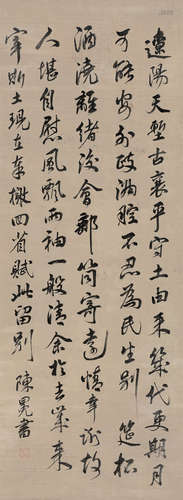 遼陽天塹古襄平守土由來幾代更期月
可能政滿腔不忍為民生別筵把
酒澆離緒後會郵筒寄遠情幸謝故
人堪自慰風飄兩袖一般清余於去歲來
宰斯土現奉檄回省賦此留別 陳冕書